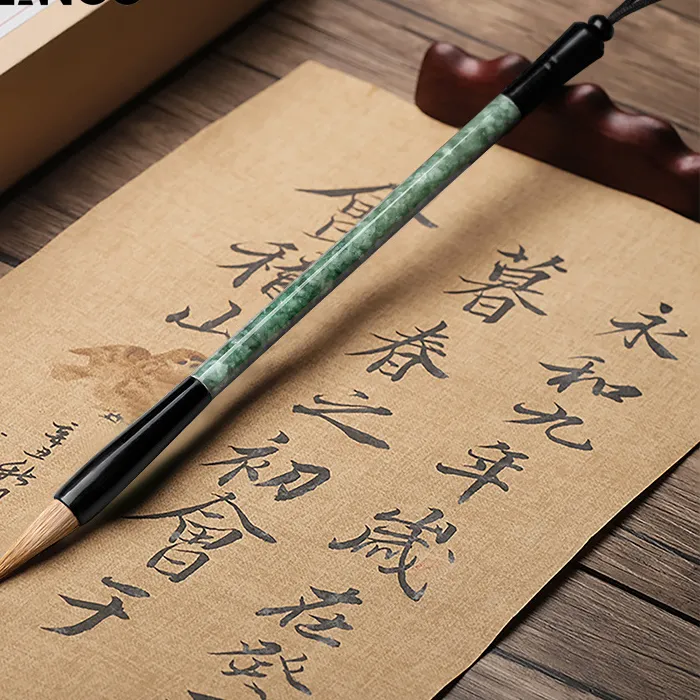 永和九年歲在癸
暮春之初會于
會稽山
辛丑秋